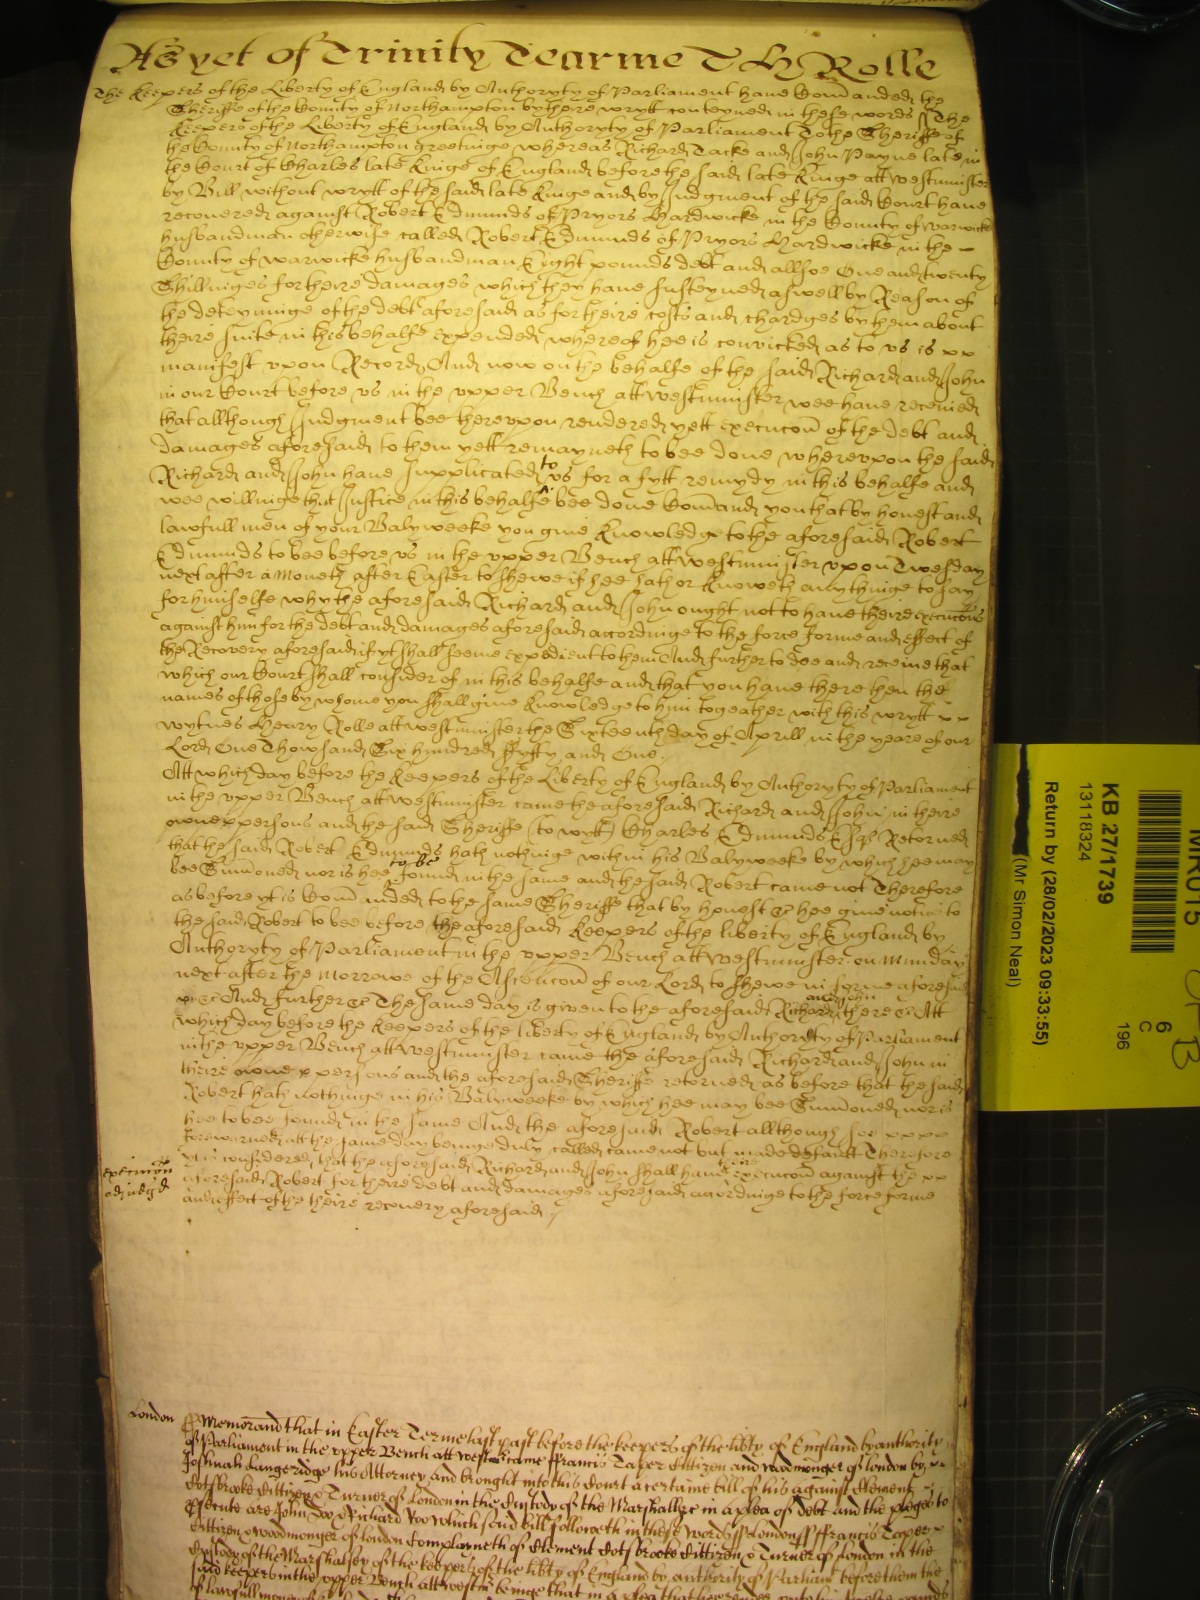 As yet of Trinity Tearme T H Rolle
The Keepers of the Liberty of England by Authoryty of Parliament have Com̄anded the
Sheriffe of the County of Northampton by there wrytt conteyned in these words ss The
Keepers of the Liberty of England by Authoryty of Parliament To the Sheriffe of
the County of Northampton greetinge whereas Richard Tacke and John Payne late in
the Court of Charles late Kinge of England before the said late Kinge att Westminster
by Bill without wrytt of the said late Kinge and by Judgment of the said Court have
recovered against Robert Edmunds of Pryors Hardwicke in the County of Warwicke
husbandman otherwise called Robert Edmunds of Pryors Hardwicke in the
County of Warwicke husbandman Eight pounds debt and allsoe One and twenty
Shillinges for theire damages which they have susteyned aswell by Reason of
the deteyninge of the debt aforesaid as for theire costs and chardges by them about
theire suite in this behalfe expended whereof hee is convicted as to us is xx
manifest upon Record And now on the behalfe of the said Richard and John
in our Court before us in the upper Bench att Westminster wee have received
that allthough Judgment bee thereupon rendered yett execucon̄ of the debt and
damages aforesaid to them yett remayneth to bee done whereupon the said
Richard and John have supplicated to us for a fytt remydy in this behalfe and
wee willinge that Justice in this behalfe bee done Com̄and you that by honest and
lawfull men of your Balyweeke you give Knowledge to the aforesaid Robert
Edmunds to bee before us in the upper Bench att Westminster upon Twesday
next after a Moneth after Easter to shewe if hee hath or knoweth anythinge to say
for himselfe why the aforesaid Richard and John ought not to have theire execucons
against him for the debt and damages aforesaid accordinge to the force forme and effect of
the Recovery aforesaid if yt shall seeme expedient to them And further to doe and receive that
which our Court shall consider of in this behalfe and that you have there then the
names of those by whome you shall give Knowledge to him togeather with this wrytt xx
wytnes Henry Rolle att Westminster the Sixteenth day of Aprill in the yeare of our
Lord One Thowsand Six hundred ffyfty and One.
Att which day before the Keepers of the Liberty of England by Authoryty of Parliament
in the upper Bench att Westminster came the aforesaid Richard and John in theire
owne persons and the said Sheriffe (to wytt) Charles Edmunds Esqr Retorned
that the said Robert Edmunds hath nothinge within his Balyweeke by which hee may
bee Summoned nor is hee to be found in the same and the said Robert came not Therefore
as before yt is Com̄anded to the same Sheriffe that by honest &c hee give notice to
the said Robert to bee before the aforesaid Keepers of the liberty of England by
Authoryty of Parliament in the upper Bench att Westminster on Munday
next after the Morrowe of the Ascencon̄ of our Lord to shewe in forme aforesaid
And further &c The same day is given to the aforesaid Richard and John there &c Att
which day before the Keepers of the liberty of England by Authoryty of Parliament
in the upper Bench att Westminster came the aforesaid Richard and John in
theire owne persons and the aforesaid Sheriffe retorned as before that the said
Robert hath nothinge in his Balyweeke by which hee may bee Summoned nor is
hee to bee found in the same And the aforesaid Robert allthough soe xxxx
forewarned att the same day beinge duly called came not but made default Therefore
yt is considered that the aforesaid Richard and John shall have theire execucon̄ against the xx
aforesaid Robert for theire debt and damages aforesaid accordinge to the force forme
and effect of the theire recovery aforesaid
execucion
adiudgd
London
Memorand that in Easter Terme last past before the keepers of the libty of England by authority
of Parliament in the upper Bench att Westm̄ came ffrancis Taper Cittizen and woodmonger of london by
Josuah Langeridge his Attorney and brought into this Court a certaine bill of his against Clement
Cotsbrooke Cittizen & Turner of London in the Custody of the Marshall &c in a plea of debt and the pledges to
prsecute are John Doo & Richard Roo which said bill followeth in these words ss London ss ffrancis Taper
Cittizen & woodmonger of london Complayneth of Clement Cotsbrooke Cittizen & Turner of london in the
Custody of the Marshalsey of the keepers of the libty of England by authority of Parliamt before them the
said keepers in the upper Bench att westm̄ beinge that in a plea that hee render
of lawfull money
MR015
KB 27/1739
13118324
Return by (28/02/2023 09:33:55)
(Mr Simon Neal)
6
C
196